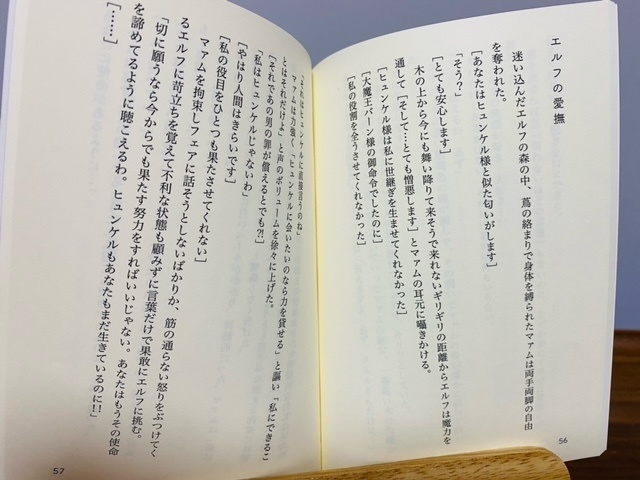 エルフの愛撫
迷い込んだエルフの森の中、蔦の絡まりで身体を縛られたマァムは両手両脚の自由
を奪われた。
[あなたはヒュンケル様と似た匂いがします]
「そう?」
[とても安心します]
木の上から今にも舞い降りて来そうで来れないギリギリの距離からエルフは魔力を
通して[そして…とても憎悪します]とマァムの耳元に囁きかける。
[ヒュンケル様は私に世継ぎを生ませてくれなかった]
[大魔王バーン様の御命令でしたのに]
[私の役割を全うさせてくれなかった]
56
「それはヒュンケルに直接言うのね」
マァムは力強く「ヒュンケルに会いたいのなら力を貸せる」と謳い「私にできるこ
とはそれだけよ」と声のボリュームを徐々に上げた。
[それであの男の罪が償えるとでも?!]
「私はヒュンケルじゃないわ」
[やはり人間はきらいです]
[私の役目をひとつも果たさせてくれない]
マァムを拘束しフェアに話そうとしないばかりか、筋の通らない怒りをぶつけてく
るエルフに苛立ちを覚えて不利な状態も顧みずに言葉だけで果敢にエルフに挑む。
「切に願うなら今からでも果たす努力をすればいいじゃない。あなたはもうその使命
を諦めてるように聴こえるわ。ヒュンケルもあなたもまだ生きているのに!!」
[……]
57